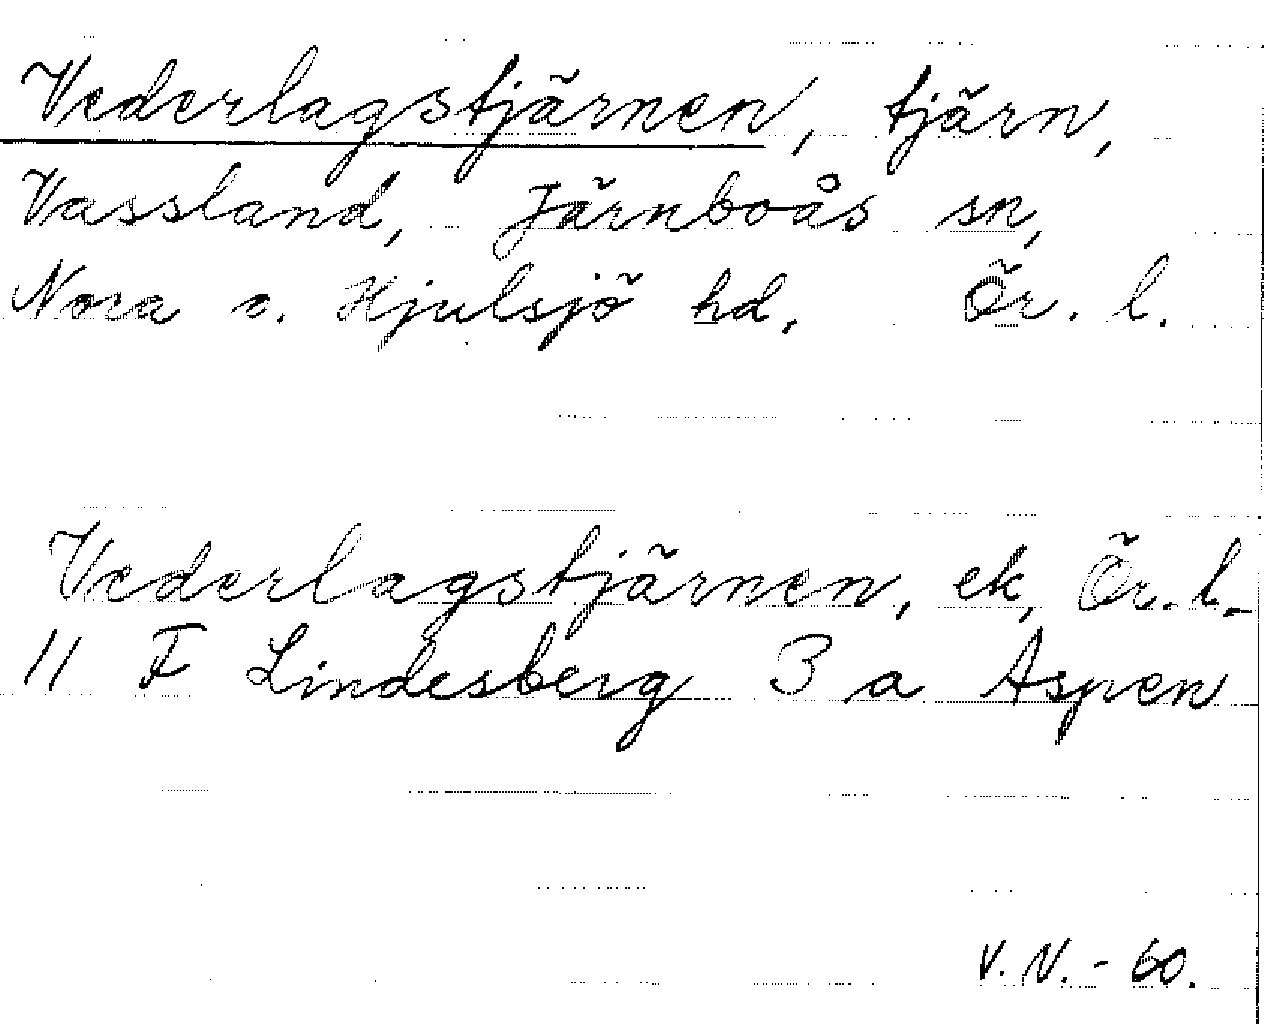 Vederlagstjärnen, tjärn,
Vassland, Järnboås sn,
Nora o. Hjulsjö hd. Ör. l.
Vederlagstjärnen, ek, Ör. l.
11 F Lindesberg 3 a Aspen
V. N. - 60.